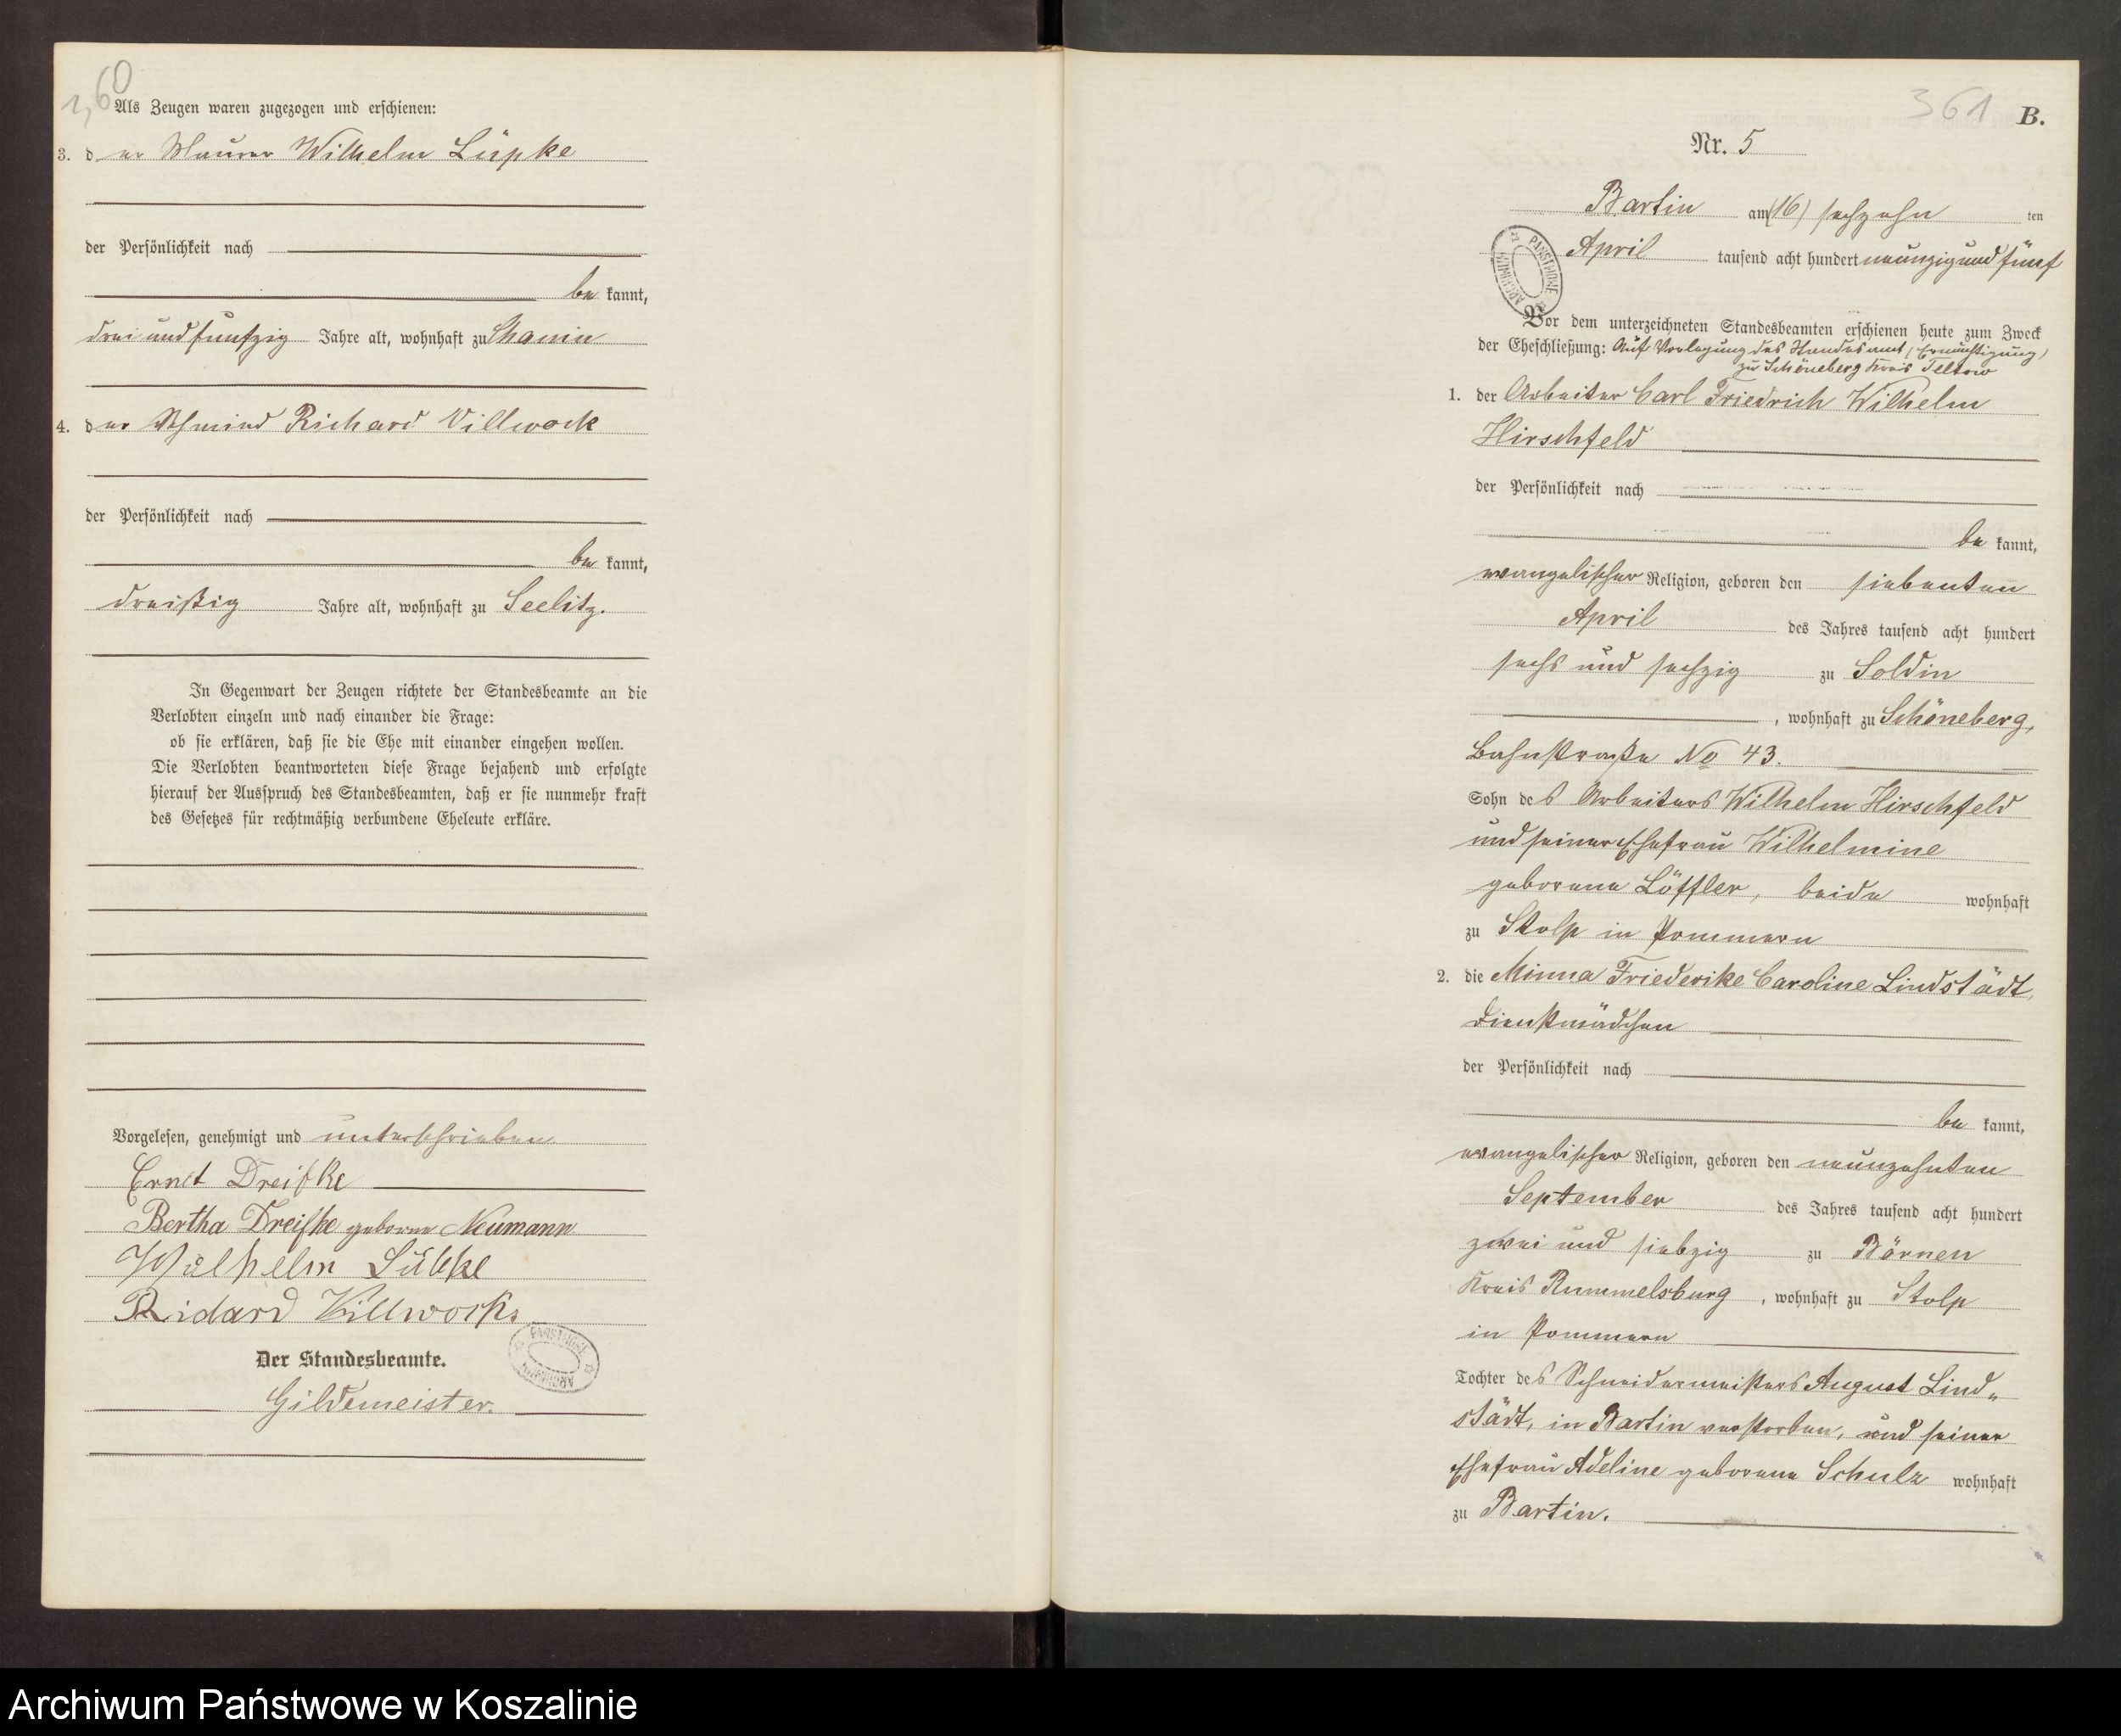 360
Als Zeugen waren zugezogen und erschienen:
3. der Maurer Wilhelm Lüpke
der Persönlichkeit nach
be kannt,
drei und funfzig Jahre alt, wohnhaft zu
4. der Schmied Richard Villwock
der Persönlichkeit nach
be kannt,
dreißig Jahre alt, wohnhaft zu Seelitz.
In Gegenwart der Zeugen richtete der Standesbeamte an die
Verlobten einzeln und nach einander die Frage:
ob sie erklären, daß sie die Ehe mit einander eingehen wollen.
Die Verlobten beantworteten diese Frage bejahend und erfolgte
hierauf der Ausspruch des Standesbeamten, daß er sie nunmehr kraft
des Gesetzes für rechtmäßig verbundene Eheleute erkläre.
Vorgelesen, genehmigt und unterschrieben
Ernst Dreifke
Bertha Dreifke geborne Neumann
Wilhelm Lübke
Richard Villwock
ARCHIWUM PAŃSTWOWE
Der Standesbeamte.
Gildemeister.
361
B.
Nr. 5
Bartin am (16) sechzehn ten
April tausend acht hundert neunzig und fünf
ARCHIWUM PAŃSTWOWE
Vor dem unterzeichneten Standesbeamten erschienen heute zum Zweck
der Eheschließung: Auf Vorlegung des Standesamt (Ermächtigung)
zu Schöneberg Kreis Teltow
1. der Arbeiter Carl Friedrich Wilhelm
Hirschfeld
der Persönlichkeit nach
be kannt,
evangelischer Religion, geboren den siebenten
April des Jahres tausend acht hundert
sechs und sechzig zu Soldin
, wohnhaft zu Schöneberg,
Bahnstraße No 43.
Sohn des Arbeiters Wilhelm Hirschfeld
und seiner Ehefrau Wilhelmine
geborene Löffler, beide wohnhaft
zu Stolp in Pommern
2. die Minna Friederike Caroline Lindstädt,
Dienstmädchen
der Persönlichkeit nach
be kannt,
evangelischer Religion, geboren den neunzehnten
September des Jahres tausend acht hundert
zwei und siebzig zu Börnen
Kreis Rummelsburg, wohnhaft zu Stolp
in Pommern
Tochter des Schneidermeisters August Lind-
städt, in Bartin verstorben, und seiner
Ehefrau Adeline geborene Schulz wohnhaft
zu Bartin.
Archiwum Państwowe w Koszalinie